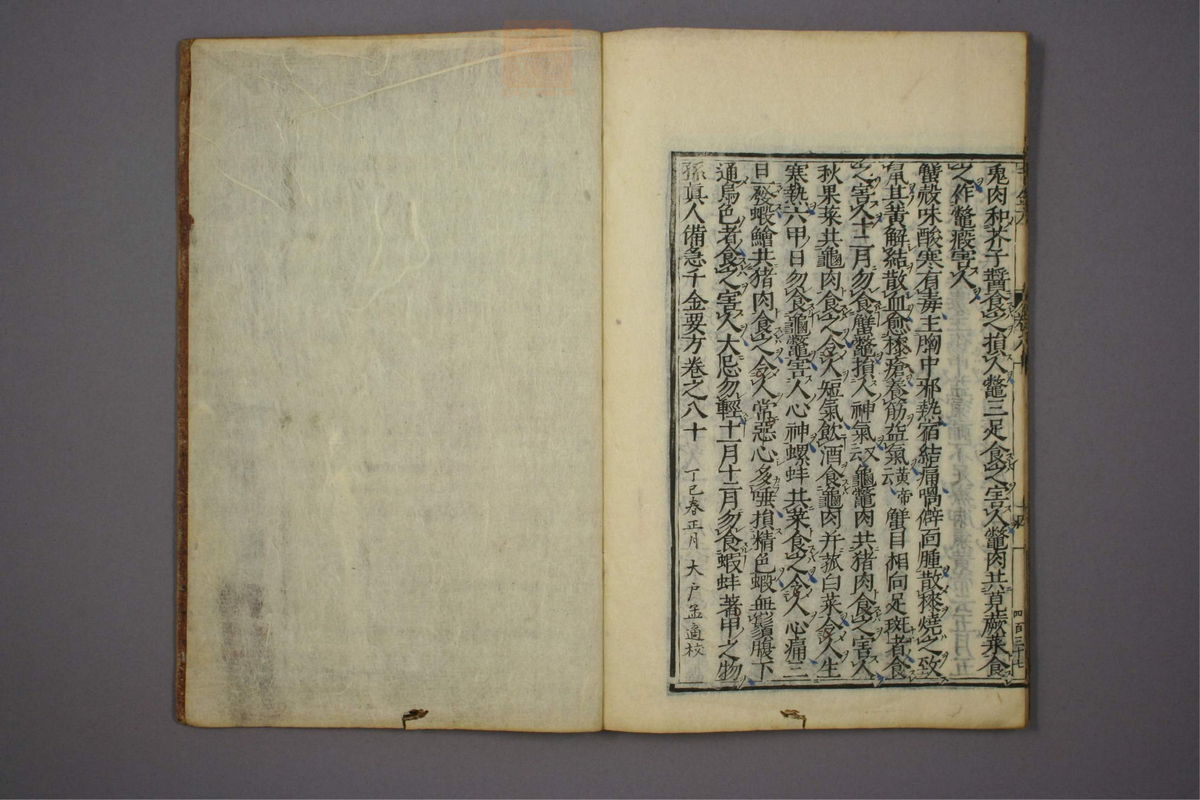 兎肉和芥子醬食之損人鼈三足食之害人鼈肉共莧蕨菜食
之作鼈瘕害人
蟹殼味酸寒有毒主胸中邪熱宿結痛喎僻面腫散漆燒之致
鼠其黃解結散血愈漆瘡養筋益氣黃帝云蟹目相向足斑者食
之害人十二月勿食蟹鼈損人神氣又云龜鼈肉共猪肉食之害人
秋果菜共龜肉食之令人短氣飲酒食龜肉并菰白菜令人生
寒熱六甲日勿食龜鼈害人心神螺蚌共菜食之令人心痛三
日一發蝦鱠共猪肉食之令人常惡心多唾損精色蝦無鬚腹下
通烏色者食之害人大忌勿輕十一月十二月勿食蝦蚌著甲之物
孫眞人備急千金要方卷之八十
丁巳春正月 大戸孟適校
四百三十七